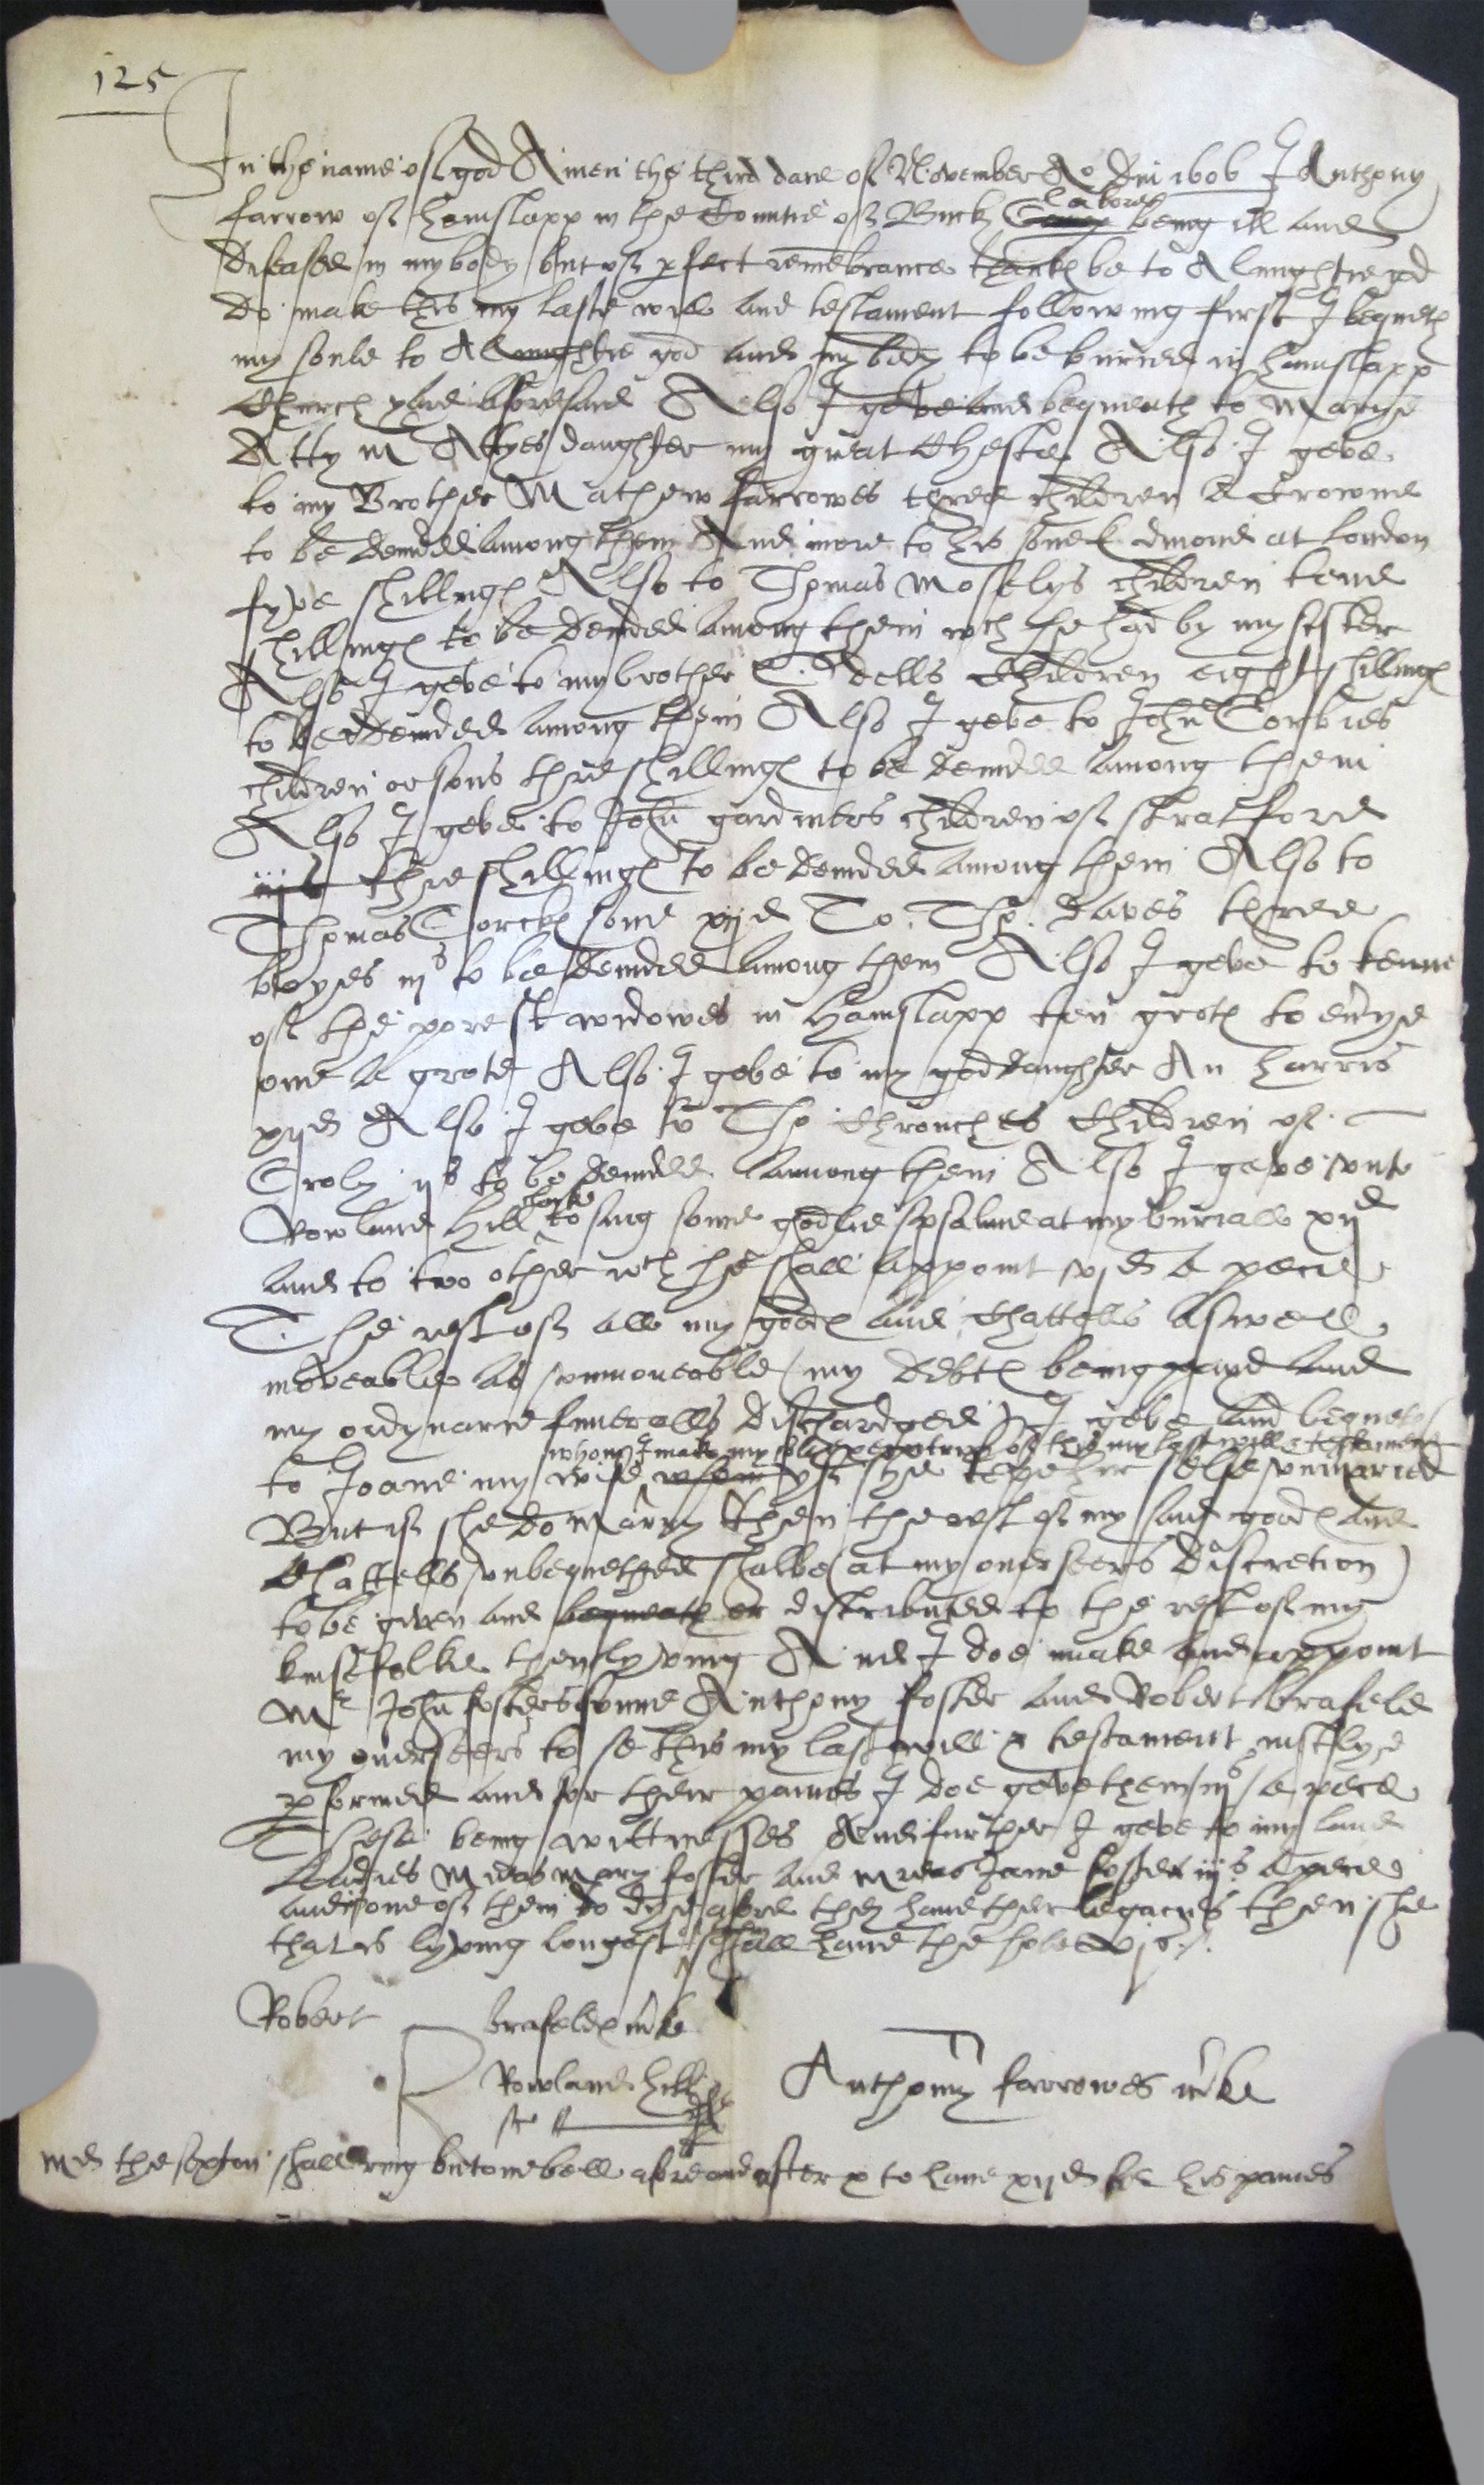 125
In the name of god Amen the third daie of November Ao Dni 1606 I Anthony
farrow of hamslapp in the Countie of Buck laborer being ill and
diseased in my body but of pfect remebrance thanks be to Almightie god
do make this my laste will and testament following first I bequeth
my soule to Almightie god and my body to be buried in hamslapp
Church yard aforesaid Also I geve and bequeath to Marye
Atty M Attyes daughter my great Cheste Also I geve
to my Brother Mathew farrowes three children A Crowne
to be devided among them And more to his sone Edmond at London
fyve shillings Also to Thomas Moselys children tenne
shillings to be devided among them wch he had by my sister
Also I geve to my brother Odells Children eight shillings
to be devided among them Also I geve to John Corbies
children or sons three shillings to be devided among them
Also I geve to John gardiners children of stratford
iijs three shillings to be devided among them Also to
Thomas sone xijd To Tho. Daves three
boyes iijs to be devided among them Also I geve to tenne
of the porest widowes in Hamslapp ten grots to evrye
one a grote Also I geve to my goddaughter An harris
xijd Also I geve to Tho Chrouches Children of
Croly ijs to be devided among them Also I geve unto
Rowland Hill clarke to sing some godlie psalme at my buriall xijd
and to two other wch he shall appoint vjd a pece
The rest of all my goods and Chattells aswell
moveable as unmoveable (my debts being payd and
my ordynarie funeralls dischardged) I geve and bequeth
whom I make my sole executrix of this my last will & testament
to Joane my wife whom yf she kepe her selfe unmaried
But if she do Marry then the rest of my said goods and
Chattells unbequethed shalbe (at my overseers discretion)
to be given and bequeath or distributed to the rest of my
kinsfolke then lyving And I doe make and appoint
Mr John fosters sonne Anthony foster and Robert brafeld
my overseers to se this my last will & testament justlye
pformed and for their paines I doe geve them iijs a pece
These being wittnesses And further I geve to my land
Ladies Mrs Mary foster and Mrs Jane foster iijs a pece
and if one of them do dye afore they have ther legacies then she
that is lyving longest shall have the hole vjs
Robert brafelds mke
Rowland hill
Anthony farrowes mke
Md the sexton shall ring but one bell afore and after & to have xijd for his paines